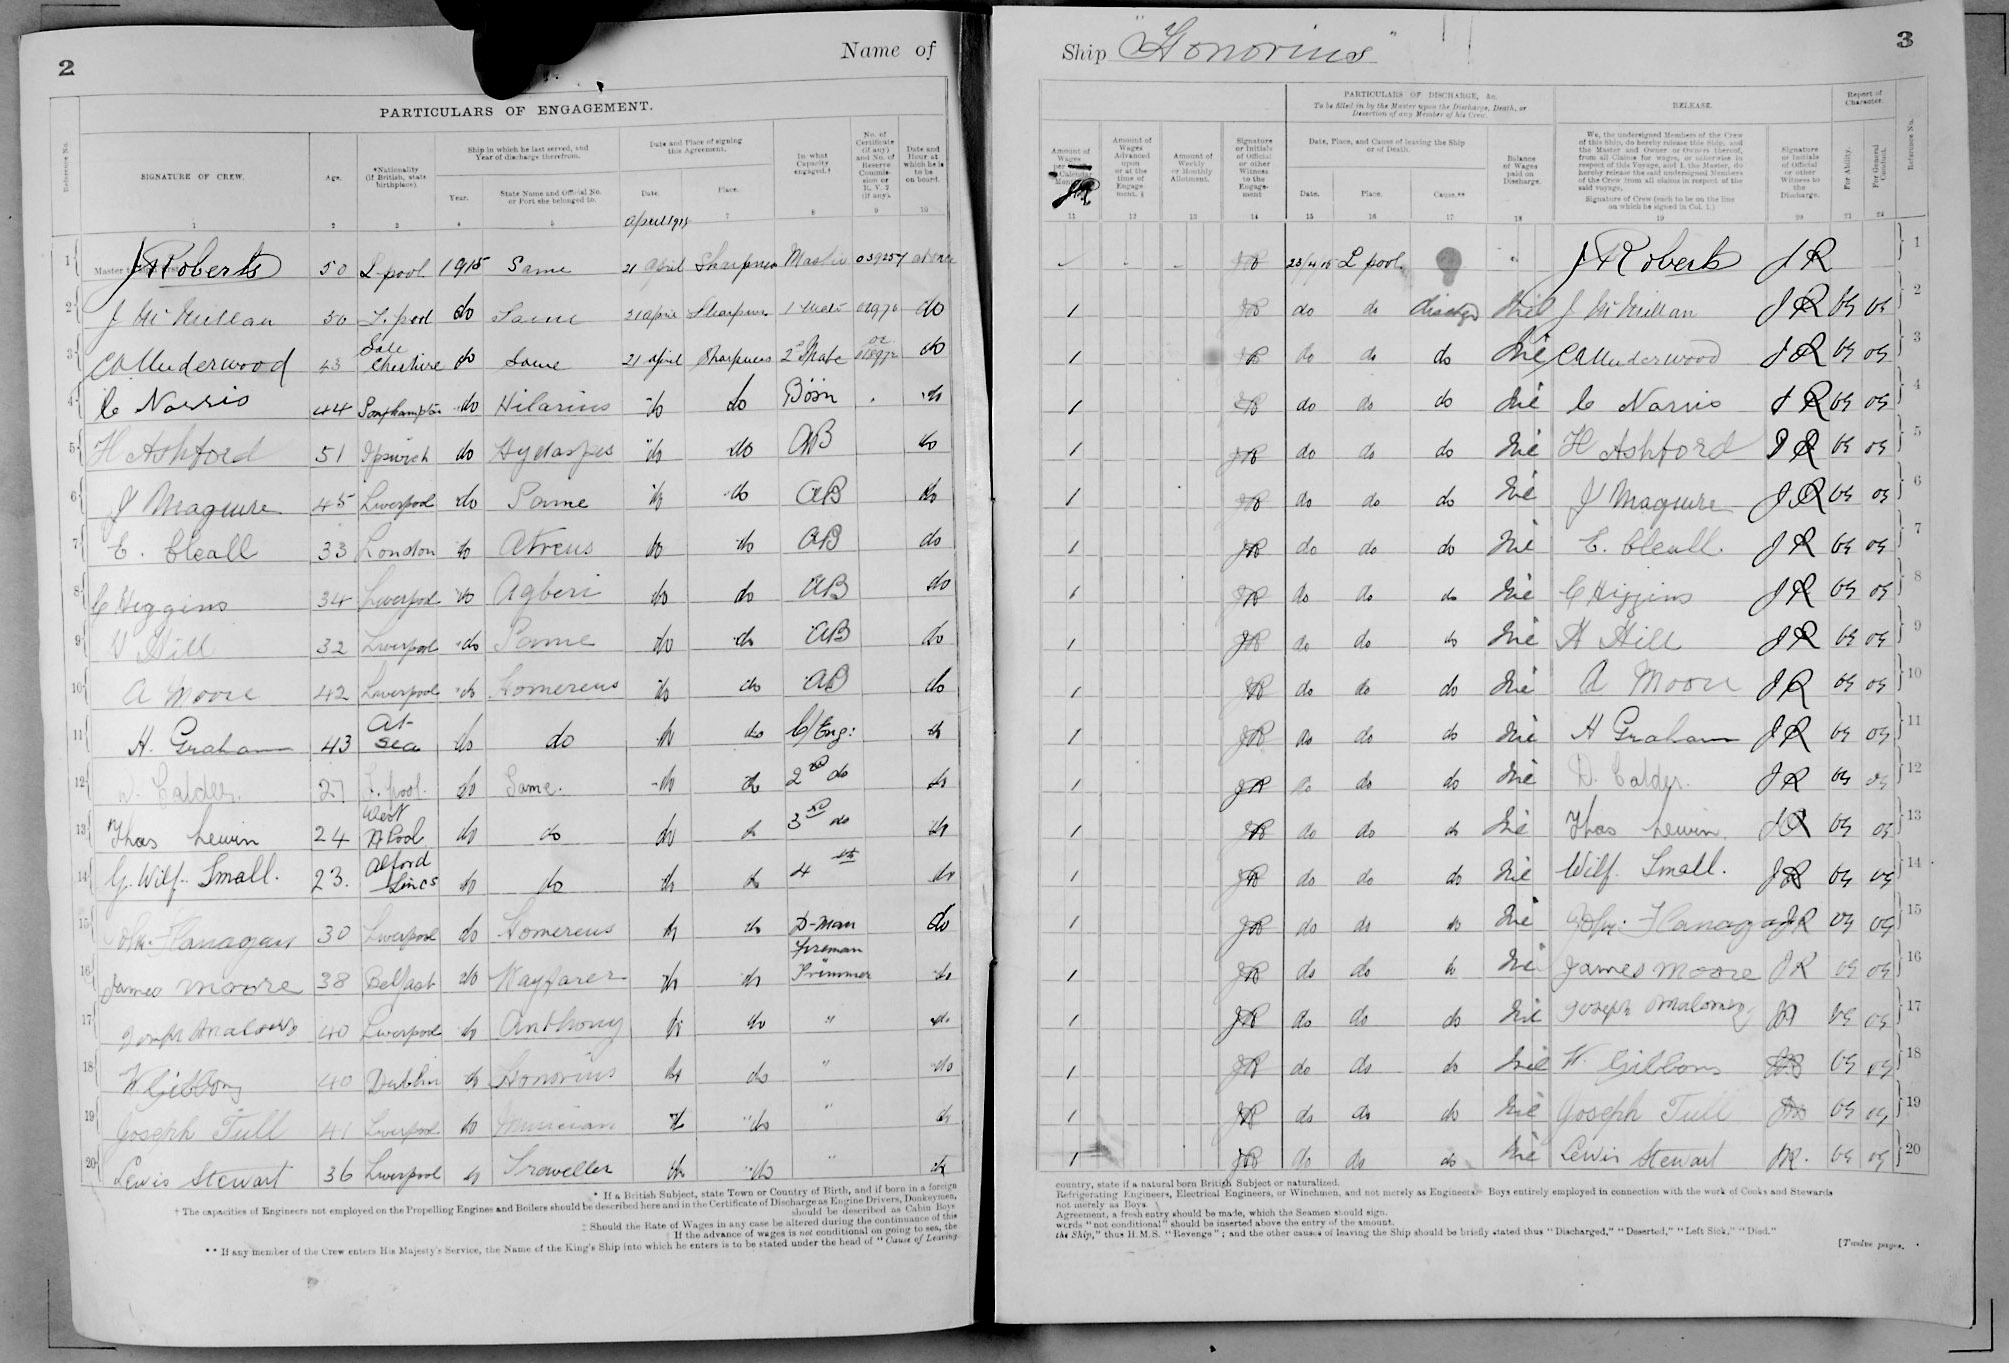 2 Name of
PARTICULARS OF ENGAGEMENT.
Reference No.
SIGNATURE OF CREW.
Age.
*Nationality (if British, state birthplace).
Ship in which he last served, and Year of discharge therefrom.
Year.
State Name and Official No. or Port she belonged to.
Date and Place of signing this Agreement.
Date.
Place.
In what Capacity engaged.†
No. of Certificate (if any) and No. of Reserve Commission or R.V.2 (if any).
Date and Hour at which he is to be on board.
1 2 3 4 5 7 8 9 10
April 1915
1 J Roberts 50 L-pool 1915 Same 21 April Sharpness Master 039257 at once
2 J McMillan 50 L.pool do Same 21 April Sharpness 1 Mate do
3 CA Underwood 43 Sale Cheshire do Same 21 April Sharpness 2nd Mate do
4 C Norris 44 Southampton do Hilarius do do Bosn do
5 H Ashford 51 Ipswich do Hydaspes do do AB do
6 J Maguire 45 Liverpool do Same do do AB do
7 E. Cleall 33 London do Atreus do do AB do
8 C Higgins 34 Liverpool do Agberi do do AB do
9 H Hill 32 Liverpool do Same do do AB do
10 A Moore 42 Liverpool do Homereus do do AB do
11 H. Graham 43 At Sea do do do do C/Eng: do
12 D. Calder. 27 L.pool. do Same. do do 2nd do do
13 Thos Lewin 24 West H Pool do do do do 3rd do do
14 G. Wilf. Small. 23. Alford Lincs do do do do 4th do
15 John Flanagan 30 Liverpool do Homereus do do D-Man do
16 James Moore 38 Belfast do Wayfarer do do Fireman Trimmer do
17 Joseph Maloney 40 Liverpool do Anthony do do " do
18 W Gibbons 40 Dublin do Honorius do do " do
19 Joseph Tull 41 Liverpool do Musician do do " do
20 Lewis Stewart 36 Liverpool do Traveller do do " do
* If a British Subject, state Town or Country of Birth, and if born in a foreign
† The capacities of Engineers not employed on the Propelling Engines and Boilers should be described here and in the Certificate of Discharge as Engine Drivers, Donkeymen,
should be described as Cabin Boys
‡ Should the Rate of Wages in any case be altered during the continuance of this
If the advance of wages is not conditional on going to sea, the
** If any member of the Crew enters His Majesty's Service, the Name of the King's Ship into which he enters is to be stated under the head of "Cause of Leaving
Ship "Honorius" 3
PARTICULARS OF DISCHARGE, &c.
To be filled in by the Master upon the Discharge, Death, or Desertion of any Member of his Crew.
RELEASE.
Report of Character.
Amount of Wages per Calendar Month
JR
Amount of Wages Advanced upon or at the time of Engagement. §
Amount of Weekly or Monthly Allotment.
Signature or Initials of Official or other Witness to the Engagement
Date, Place, and Cause of leaving the Ship or of Death.
Date.
Place.
Cause.**
Balance of Wages paid on Discharge.
We, the undersigned Members of the Crew of this Ship, do hereby release this Ship, and the Master and Owner or Owners thereof, from all Claims for wages, or otherwise in respect of this Voyage, and I, the Master, do hereby release the said undersigned Members of the Crew from all claims in respect of the said voyage.
Signature of Crew (each to be on the line on which he signed in Col. 1.)
Signature or Initials of Official or other Witness to the Discharge.
For Ability.
For General Conduct.
Reference No.
11 12 13 14 15 16 17 18 19 20 21 22
JR 23/4/15 L pool. J Roberts JR 1
1 JR do do discharged Nil J McMillan JR VG VG 2
1 JR do do do Nil CA Underwood JR VG VG 3
1 JR do do do Nil C Norris JR VG VG 4
1 JR do do do Nil H Ashford JR VG VG 5
1 JR do do do Nil J Maguire JR VG VG 6
1 JR do do do Nil E. Cleall. JR VG VG 7
1 JR do do do Nil C Higgins JR VG VG 8
1 JR do do do Nil H Hill JR VG VG 9
1 JR do do do Nil A Moore JR VG VG 10
1 JR do do do Nil H Graham JR VG VG 11
1 JR do do do Nil D. Calder. JR VG VG 12
1 JR do do do Nil Thos Lewin. JR VG VG 13
1 JR do do do Nil Wilf. Small. JR VG VG 14
1 JR do do do Nil John Flanagan JR VG VG 15
1 JR do do do Nil James Moore JR VG VG 16
1 JR do do do Nil Joseph Maloney JR VG VG 17
1 JR do do do Nil W. Gibbons JR VG VG 18
1 JR do do do Nil Joseph Tull JR VG VG 19
1 JR do do do Nil Lewis Stewart JR. VG VG 20
country, state if a natural born British Subject or naturalized.
Refrigerating Engineers, Electrical Engineers, or Winchmen, and not merely as Engineers. Boys entirely employed in connection with the work of Cooks and Stewards
not merely as Boys.
Agreement, a fresh entry should be made, which the Seamen should sign.
words "not conditional" should be inserted above the entry of the amount.
the Ship," thus H.M.S. "Revenge"; and the other causes of leaving the Ship should be briefly stated thus "Discharged," "Deserted," "Left Sick," "Died."
[Twelve pages.